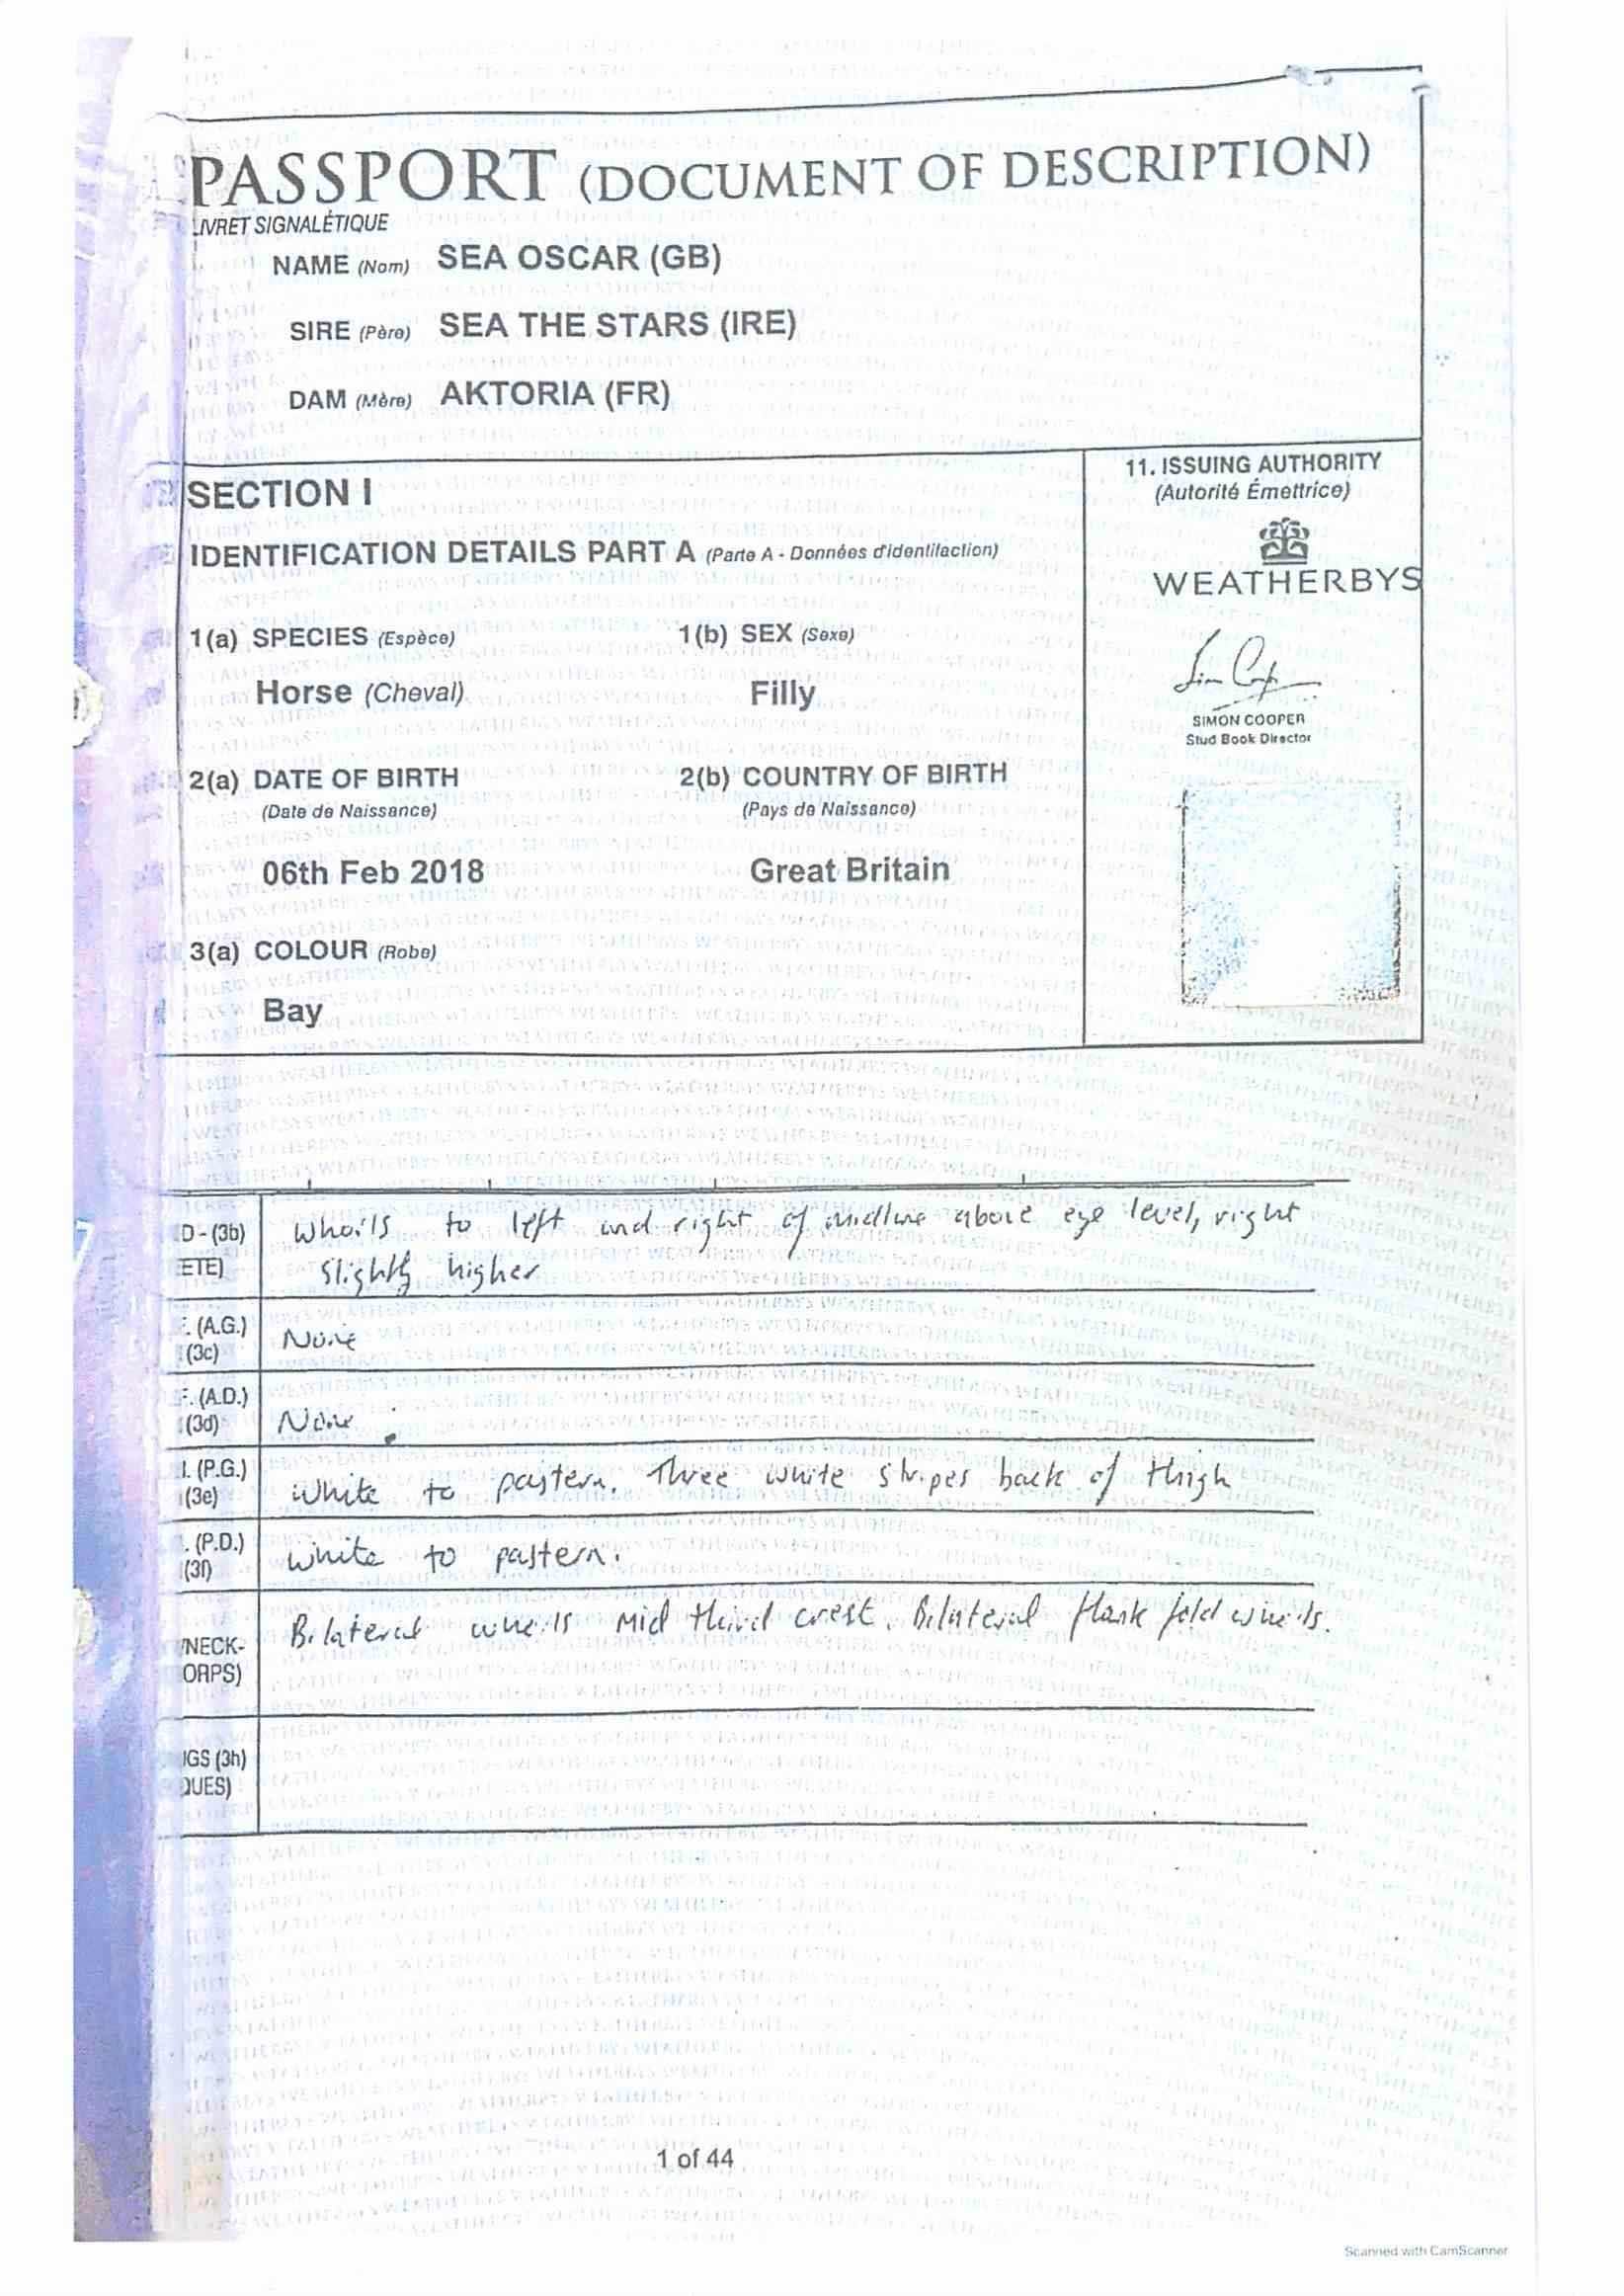 PASSPORT (DOCUMENT OF DESCRIPTION)
LIVRET SIGNALÉTIQUE
NAME (Nom) SEA OSCAR (GB)
SIRE (Père) SEA THE STARS (IRE)
DAM (Mère) AKTORIA (FR)
SECTION I
IDENTIFICATION DETAILS PART A (Parte A - Données d'identifaction)
11. ISSUING AUTHORITY
(Autorité Émettrice)
WEATHERBYS
SIMON COOPER
Stud Book Director
1(a) SPECIES (Espèce) 1(b) SEX (Sexe)
Horse (Cheval) Filly
2(a) DATE OF BIRTH 2(b) COUNTRY OF BIRTH
(Date de Naissance) (Pays de Naissance)
06th Feb 2018 Great Britain
3(a) COLOUR (Robe)
Bay
D - (3b) Whorls to left and right of midline above eye level, right
ETE) slightly higher
. (A.G.)
(3c) None
. (A.D.)
(3d) None
. (P.G.)
(3e) White to pastern. Three white stripes back of thigh
. (P.D.)
(3f) White to pastern.
Bilateral whorls mid third crest. Bilateral flank fold whorls.
/NECK-
ORPS)
IGS (3h)
QUES)
1 of 44
Scanned with CamScanner